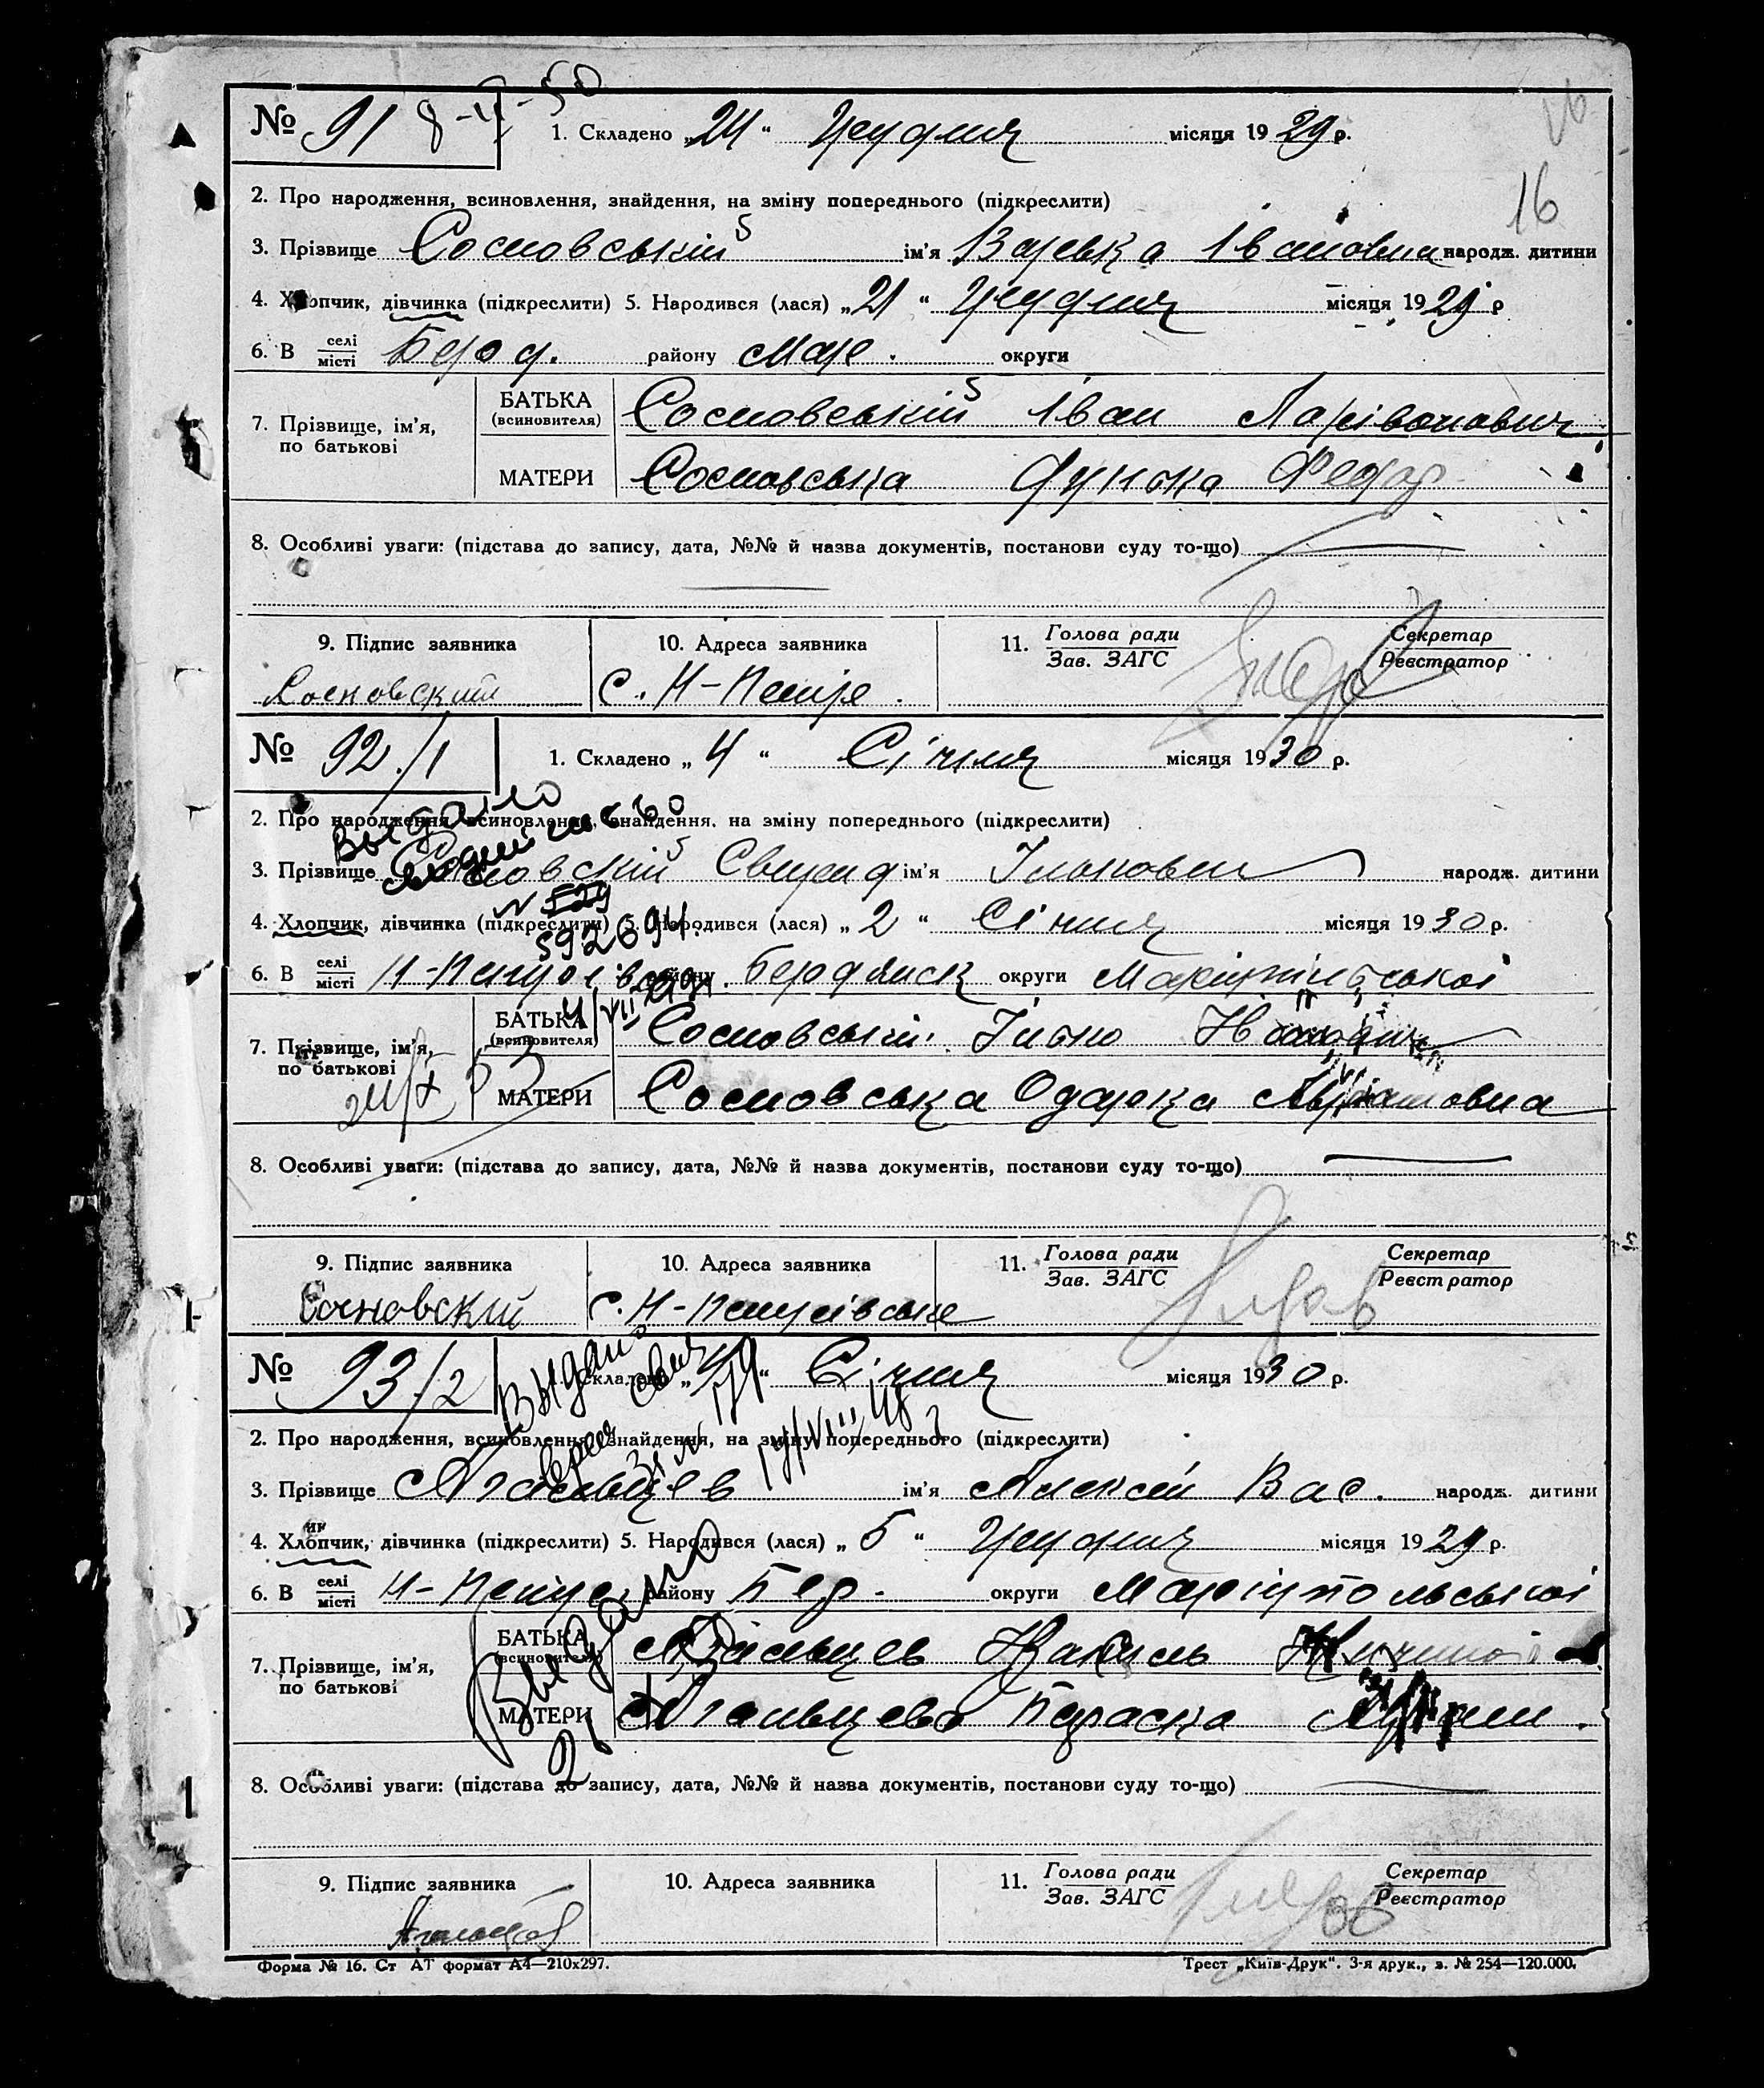 16
№ 91 8-4-50 1. Складено „24“ Грудня місяця 1929 р.
16
2. Про народження, всиновлення, знайдення, на зміну попереднього (підкреслити)
3. Прізвище Сосновській ім'я Варька Івановна народж. дитини
4. Хлопчик, дівчинка (підкреслити) 5. Народився (лася) „21“ Грудня місяця 1929 р
6. В селі місті Берд. району Мар. округи
7. Прізвище, ім'я, по батькові БАТЬКА (всиновителя) Сосновській Іван Ларівонович
МАТЕРИ Сосновська Федор
8. Особливі уваги: (підстава до запису, дата, №№ й назва документів, постанови суду то-що)
9. Підпис заявника 10. Адреса заявника 11. Голова ради Зав. ЗАГС Секретар Реєстратор
Сосновский с. Н-Петр.
№ 92/1 1. Складено „4“ Січня місяця 1930 р.
Выдано
2. Про народження, всиновлення, знайдення. на зміну попереднього (підкреслити)
3. Прізвище Сосновській Свирид ім'я Ількович народж. дитини
4. Хлопчик, дівчинка (підкреслити) 5. Народився (лася) „2“ Січня місяця 1930 р.
592694
6. В селі місті Н-Петрівці району Бердянск округи Маріупільської
7. Прізвище, ім'я, по батькові БАТЬКА (всиновителя) Сосновській Ілько
МАТЕРИ Сосновська Одарка
8. Особливі уваги: (підстава до запису, дата, №№ й назва документів, постанови суду то-що)
9. Підпис заявника 10. Адреса заявника 11. Голова ради Зав. ЗАГС Секретар Реєстратор
Сосновский с. Н-Петрівське
№ 93/2 1. Складено Січня місяця 1930 р.
Выдано
2. Про народження, всиновлення, знайдення, на зміну попереднього (підкреслити)
3. Прізвище ім'я Алексей Вас. народж. дитини
4. Хлопчик, дівчинка (підкреслити) 5. Народився (лася) „5“ Грудня місяця 1929 р.
6. В селі місті Н-Петр. району Бер. округи Маріупольської
Выдано
7. Прізвище, ім'я, по батькові БАТЬКА (всиновителя)
МАТЕРИ Параска
8. Особливі уваги: (підстава до запису, дата, №№ й назва документів, постанови суду то-що)
9. Підпис заявника 10. Адреса заявника 11. Голова ради Зав. ЗАГС Секретар Реєстратор
Форма № 16. Ст АТ формат А4—210х297. Трест „Київ-Друк“. 3-я друк., з. № 254—120.000.